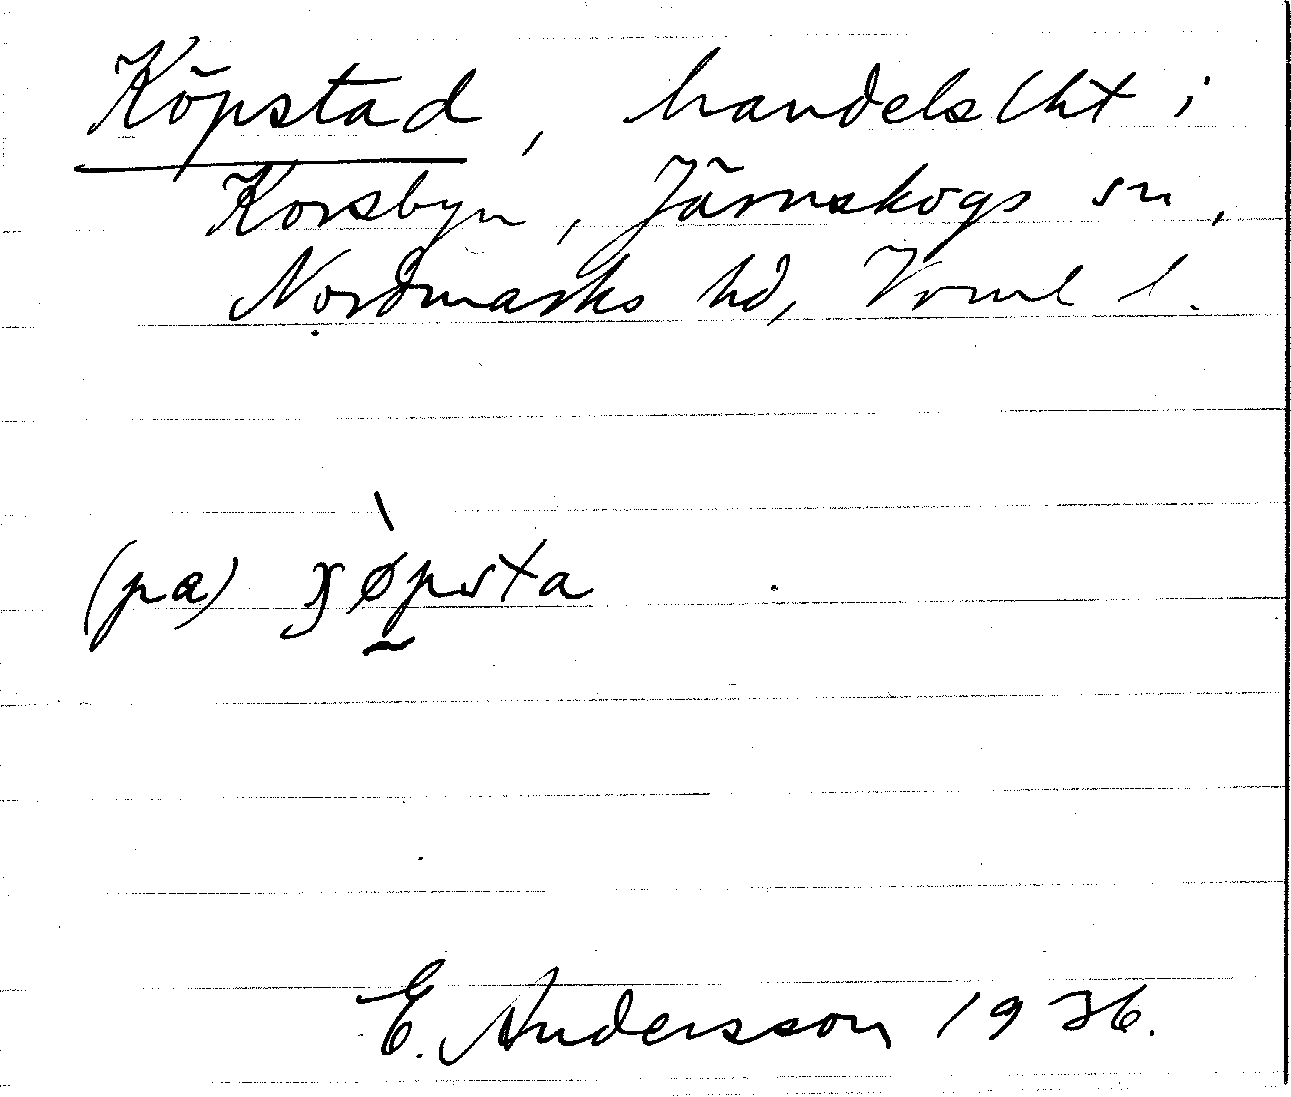 Köpstad, handelslht i
Korsbyn, Järnskogs sn,
Nordmarks hd, Vrml l.
(pa)
E. Andersson 1936.